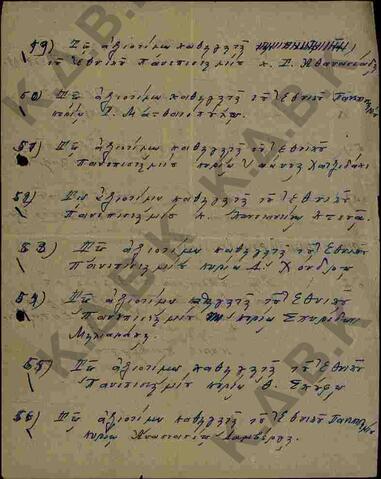 49) Τῷ ἀξιοτίμῳ καθηγητῇ
τοῦ Ἐθνικοῦ Πανεπιστημίου κ. Γ. Ἀθανασιάδῃ
50) Τῷ ἀξιοτίμῳ καθηγητῇ τοῦ Ἐθνικοῦ Πανεπ/μίου
κυρίῳ
51) Τῷ ἀξιοτίμῳ καθηγητῇ τοῦ Ἐθνικοῦ
Πανεπιστημίου κυρίῳ Ἰωάννῃ Χατζιδάκι
52) Τῷ ἀξιοτίμῳ καθηγητῇ τοῦ Ἐθνικοῦ
Πανεπιστημίου κ.
53) Τῷ ἀξιοτίμῳ καθηγητῇ τοῦ Ἐθνικοῦ
Πανεπιστημίου κυρίῳ Δ. Χόνδρῳ
54) Τῷ ἀξιοτίμῳ καθηγητῇ τοῦ Ἐθνικοῦ
Πανεπιστημίου κυρίῳ Σπυρίδωνι
55) Τῷ ἀξιοτίμῳ καθηγητῇ τοῦ Ἐθνικοῦ
Πανεπιστημίου κυρίῳ Θ.
56) Τῷ ἀξιοτίμῳ καθηγητῇ τοῦ Ἐθνικοῦ Πανεπ/μίου
κυρίῳ Ἀναστασίῳ
Κ.Δ.Β.Κ